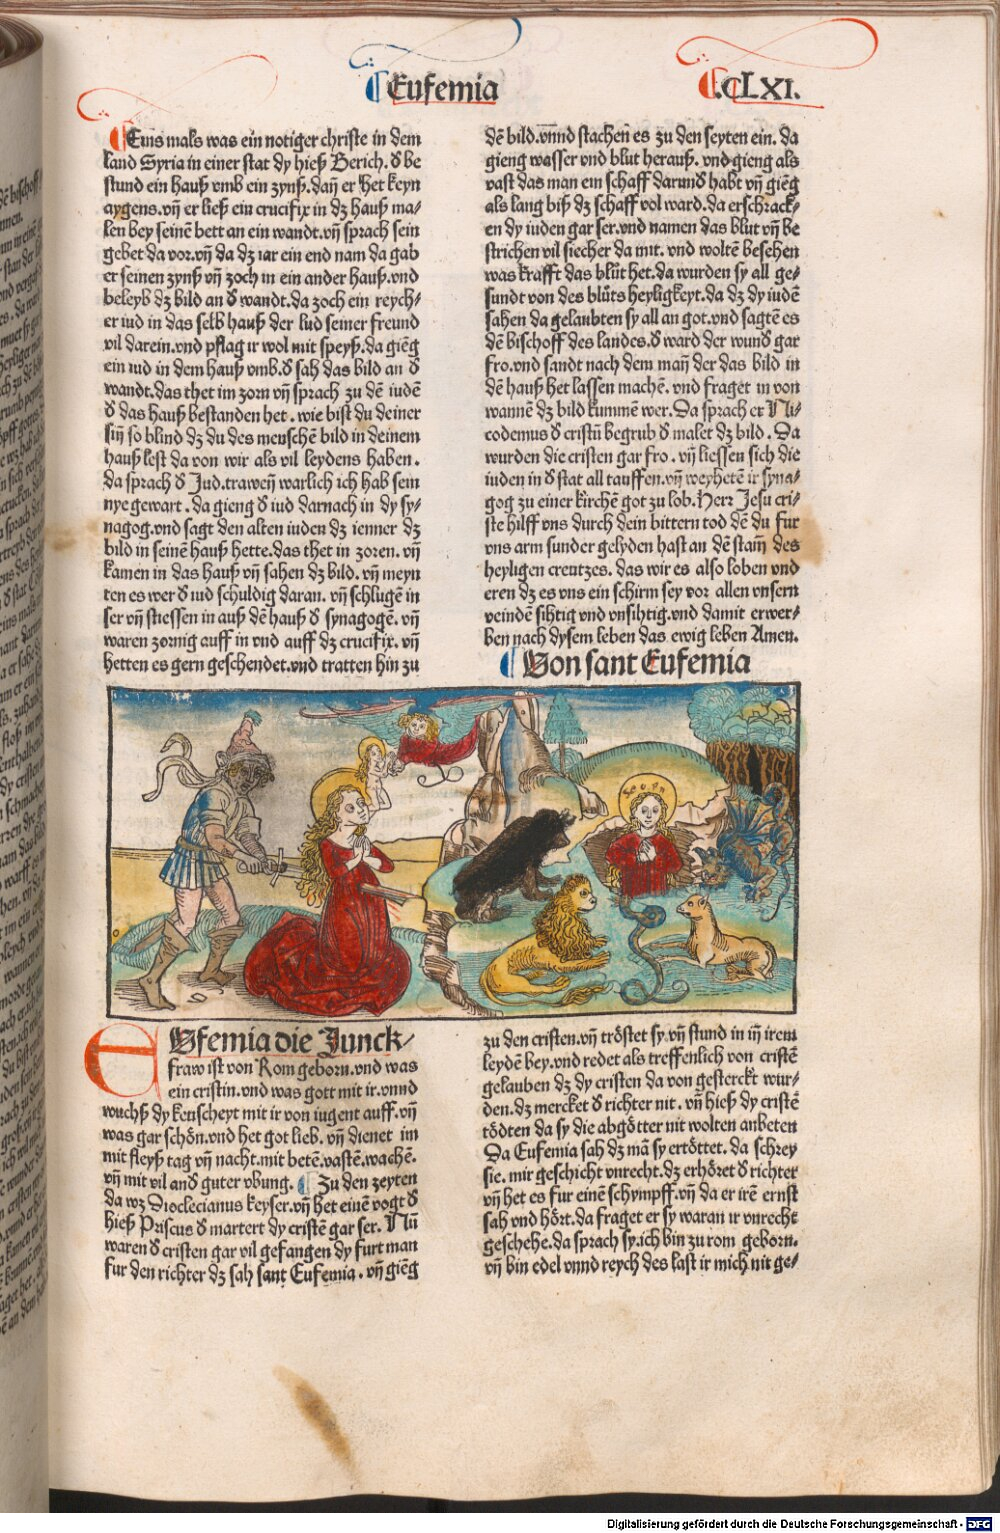 Eufemia
.CCLXI.
Eins mals was ein notiger christe in dem
land Syria in einer stat dy hieß Berich. d̕ be
stund ein hauß vmb ein zynß. dañ er het keyn
aygens. vñ er ließ ein crucifix in dz hauß ma-
len bey seinē bett an ein wandt. vñ sprach sein
gebet da vor. vñ da dz iar ein end nam da gab
er seinen zynß vñ zoch in ein ander hauß. vnd
beleyb dz bild an d̕ wandt. da zoch ein reych-
er iud in das selb hauß der lud seiner freund
vil darein. vnd pflag ir wol mit speyß. da giēg
ein iud in dem hauß vmb. d̕ sah das bild an d̕
wandt. das thet im zorn vñ sprach zu dē iudē
d̕ das hauß bestanden het. wie bist du deiner
siñ so blind dz du des menschē bild in deinem
hauß lest da von wir als vil leydens haben.
da sprach d̕ Jud. traweñ warlich ich hab sein
nye gewart. da gieng d̕ iud darnach in dy sy-
nagog. vnd sagt den alten iuden dz ienner dz
bild in seinē hauß hette. das thet in zoren. vñ
kamen in das hauß vñ sahen dz bild. vñ meyn
ten es wer d̕ iud schuldig daran. vñ schlugē in
ser vñ stiessen in auß dē hauß d̕ synagogē. vñ
waren zornig auff in vnd auff dz crucifix. vñ
hetten es gern geschendet. vnd tratten hin zu
dē bild. vnnd stachen es zu den seyten ein. da
gieng wasser vnd blut herauß. vnd gieng als
vast das man ein schaff darund̕ habt vñ giēg
als lang biß dz schaff vol ward. da erschrack-
en dy iuden gar ser. vnd namen das blut vñ be
strichen vil siecher da mit. vnd woltē besehen
was krafft das blůt het. da wurden sy all ge-
sundt von des blůts heyligkeyt. da dz dy iudē
sahen da gelaubten sy all an got. vnd sagtē es
dē bischoff des landes. d̕ ward der wund̕ gar
fro. vnd sandt nach dem mañ der das bild in
dē hauß het lassen machē. vnd fraget in von
wannē dz bild kummē wer. Da sprach er Ni-
codemus d̕ cristū begrub d̕ malet dz bild. Da
wurden die cristen gar fro. vñ liessen sich die
iuden in d̕ stat all tauffen. vñ weyhetē ir syna-
gog zu einer kirchē got zu lob. Herr Jesu cri-
ste hilff vns durch dein bittern tod dē du fur
vns arm sunder gelyden hast an dē stam̄ des
heyligen creutzes. das wir es also loben vnd
eren dz es vns ein schirm sey vor allen vnsern
veindē sihtig vnd vnsihtig. vnd damit erwer-
ben nach dysem leben das ewig leben Amen.
Von sant Eufemia
EVfemia die Junck-
fraw ist von Rom geborn. vnd was
ein cristin. vnd was gott mit ir. vnnd
wuchß dy keuscheyt mit ir von iugent auff. vñ
was gar schön. vnd het got lieb. vñ dienet im
mit fleyß tag vñ nacht. mit betē. vastē. wachē.
vñ mit vil and̕ guter vbung. Zu den zeyten
da wz Dioclecianus keyser. vñ het einē vogt d̕
hieß Priscus d̕ martert dy cristē gar ser. Nū
waren d̕ cristen gar vil gefangen dy furt man
fur den richter dz sah sant Eufemia. vñ giēg
zu den cristen. vñ tröstet sy. vñ stund in iñ irem
leydē bey. vnd redet als treffenlich von cristē
gelauben dz dy cristen da von gesterckt wur-
den. dz mercket d̕ richter nit. vñ hieß dy cristē
tödten da sy die abgötter nit wolten anbeten
Da Eufemia sah dz mā sy ertöttet. da schrey
sie. mir geschicht vnrecht. dz erhöret d̕ richter
vñ het es fur einē schympff. vñ da er irē ernst
sah vnd hört. da fraget er sy waran ir vnrecht
geschehe. da sprach sy. ich bin zu rom geborn.
vñ bin edel vnnd reych des last ir mich nit ge-
Digitalisierung gefördert durch die Deutsche Forschungsgemeinschaft - DFG